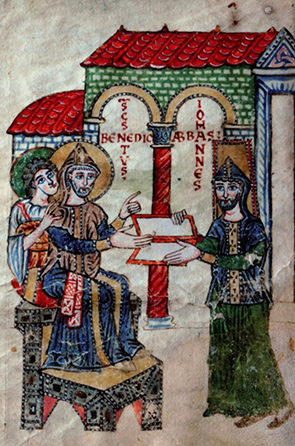 SCS
BENEDIC
TVS:
IOHANNES
ABBAS: